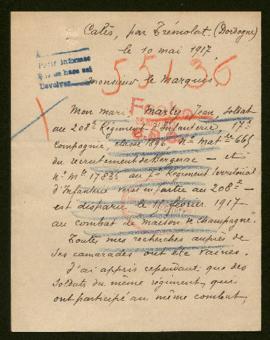 Calès, par Trémolat. (Dordogne)
le 10 mai 1917
55136
Monsieur le Marquis,
Mon mari, Jean, soldat
au 208e Régiment d'Infanterie, 17e
Compagnie, classe 1896, No mat 665
du recrutement de Bergerac — et
No Mle 17835 au Régiment Territorial
d'Infanterie mis en au 208e
est disparu le 15 février 1917 —
au combat de Maison de Champagne.
Toutes mes recherches auprès de
ses camarades ont été vaines.
J'ai appris cependant que des
soldats du même régiment, qui
ont participé au même combat,